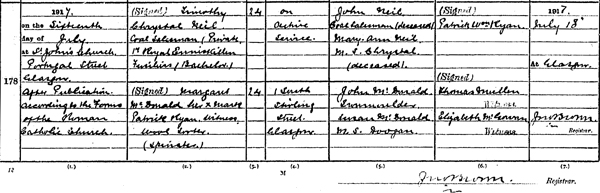 1917. (Signed) Timothy 24 on John Neil (Signed) 1917.
on the Fifteenth Chrystal Neil Active Coal Salesman (deceased) Patrick Wm Ryan. July 18th
day of July Coal Salesman (Private, Service. Mary Ann Neil
at St. John's Church, 1st Royal Inniskillen M.S. Chrystal
Portugal Street Fusiliers) (Bachelor) (deceased) At Glasgow.
Glasgow.
178
(Signed)
After Publication (Signed) Margaret 24 1 South John McDonald Thomas Mullen
according to the Forms McDonald her x Mark Stirling Ironmoulder Witness
of the Roman Patrick Ryan, witness, Street Susan McDonald Elizabeth McGowan Jno Brown
Catholic Church. Wool Sorter Glasgow M.S. Doogan Witnesses Registrar.
(Spinster)
12 (1.) (2.) (3.) (4.) (5.) (6.) (7.)
M
Jno Brown. Registrar.